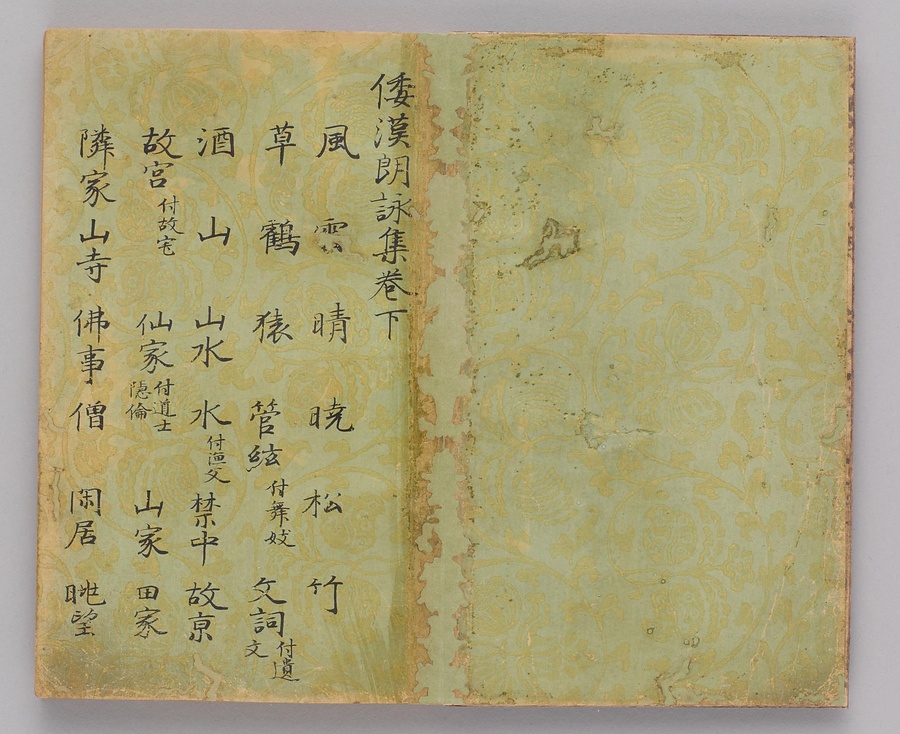 倭漢朗詠集巻下
風 雲 晴 暁 松 竹
草 鶴 猿 管絃 付舞妓 文詞 付遺文
酒 山 山水 水 付漁父 禁中 故京
故宮 付故宅 仙家 付道士隠倫 山家 田家
隣家 山寺 佛事 僧 閑居 眺望